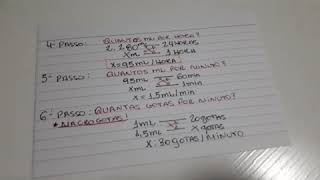 4º PASSO: QUANTOS ML POR HORA?
2.280ml 24 HORAS
X ml 1 HORA
X=95ML/HORA
5º PASSO: QUANTOS ML POR MINUTO?
95ml 60min
X ml 1min
X=1,5ml/min
6º PASSO: QUANTAS GOTAS POR MINUTO?
* MACROGOTAS!
1ml 20gotas
1,5ml X gotas
X: 30 GOTAS/MINUTO